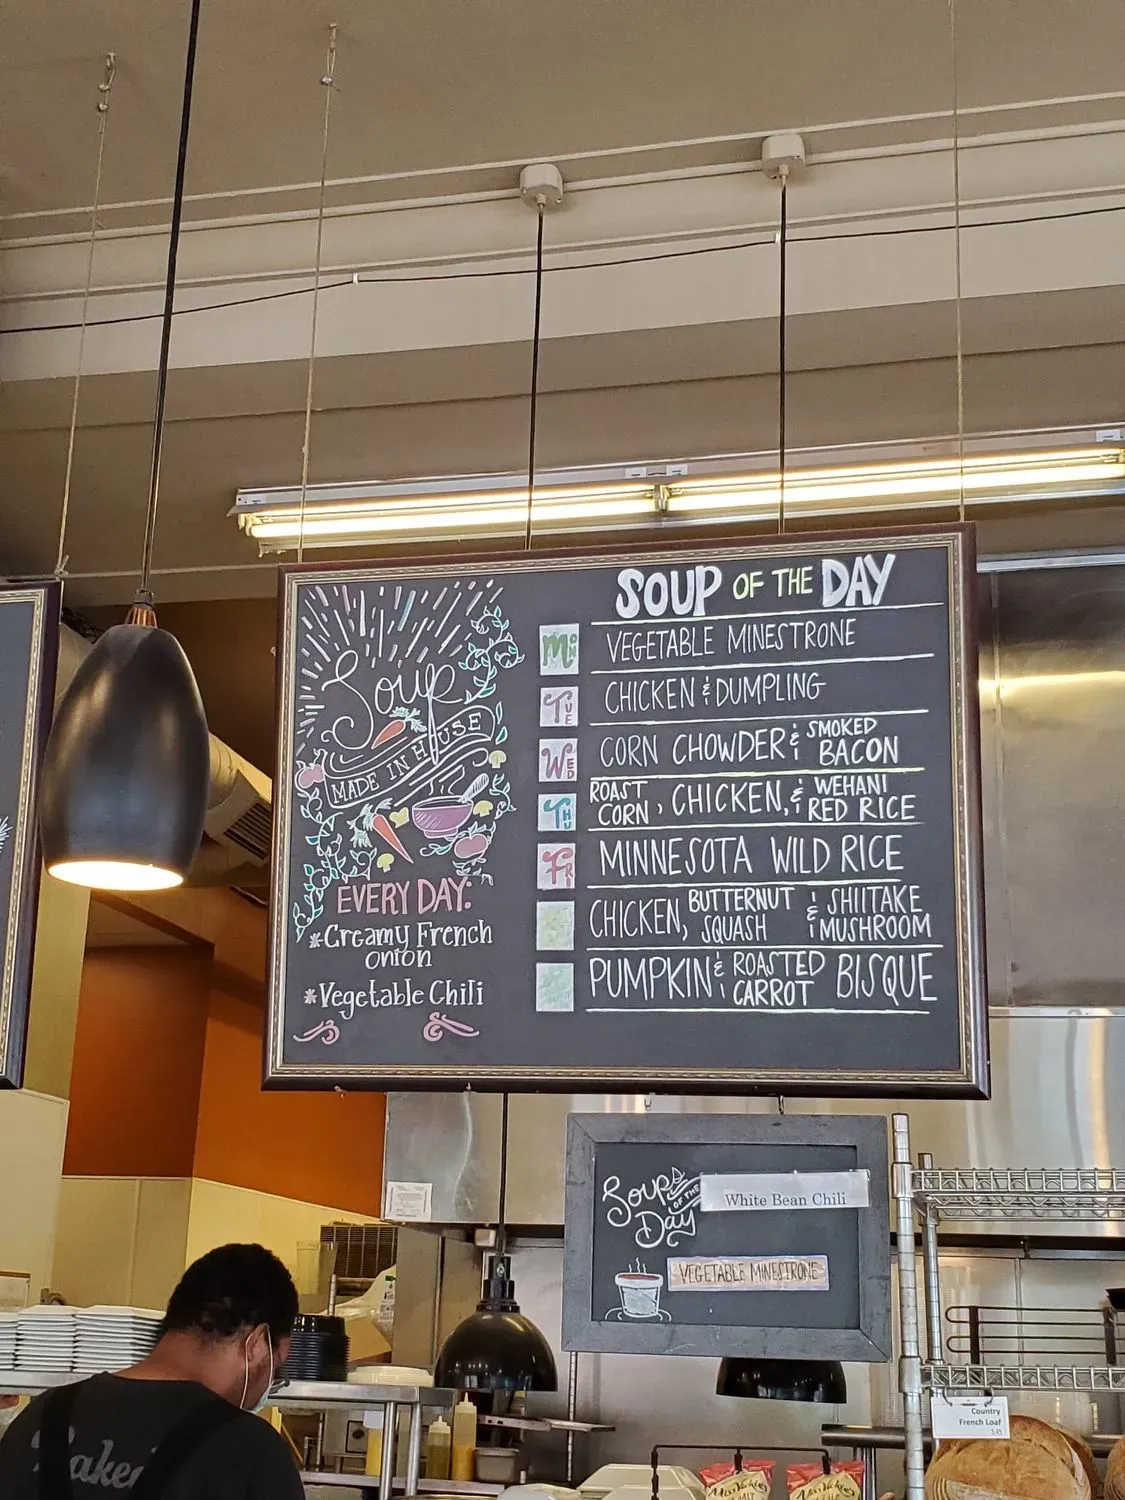 Soup
MADE IN HOUSE
EVERY DAY:
*Creamy French
onion
*Vegetable Chili
SOUP OF THE DAY
MON VEGETABLE MINESTRONE
TUE CHICKEN & DUMPLING
WED CORN CHOWDER & SMOKED BACON
THU ROAST CORN, CHICKEN, & WEHANI RED RICE
FRI MINNESOTA WILD RICE
CHICKEN, BUTTERNUT SQUASH & SHIITAKE MUSHROOM
PUMPKIN & ROASTED CARROT BISQUE
Soups
OF THE
Day
White Bean Chili
VEGETABLE MINESTRONE
Country
French Loaf
5.45
Miss Vickie's
Miss Vickie's